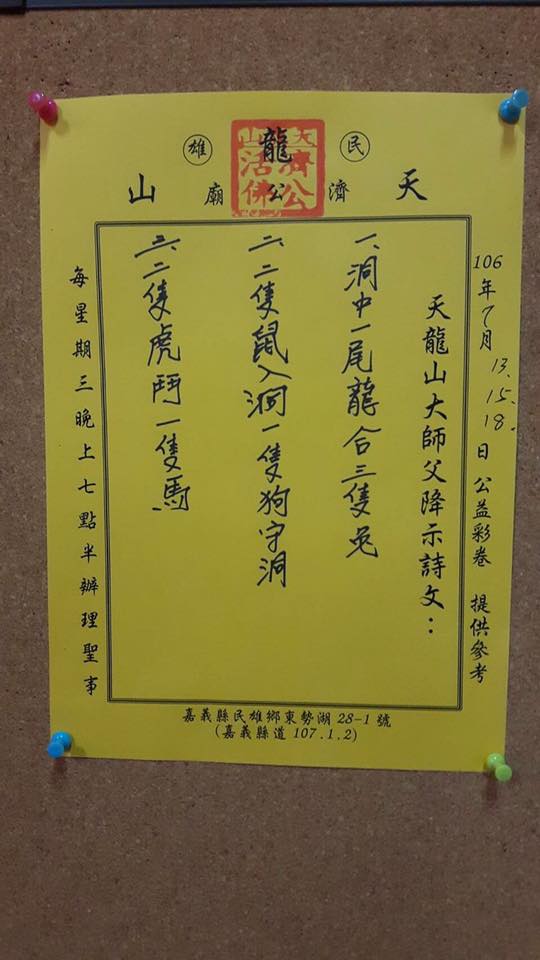 民雄
天龍山
濟公廟
濟公
活佛
106年7月13.15.18.日 公益彩卷 提供參考
天龍山大師父降示詩文：
一、洞中一尾龍合三隻兔
二、二隻鼠入洞一隻狗守洞
三、二隻虎鬥一隻馬
每星期三晚上七點半辦理聖事
嘉義縣民雄鄉東勢湖28-1號
(嘉義縣道107.1.2)